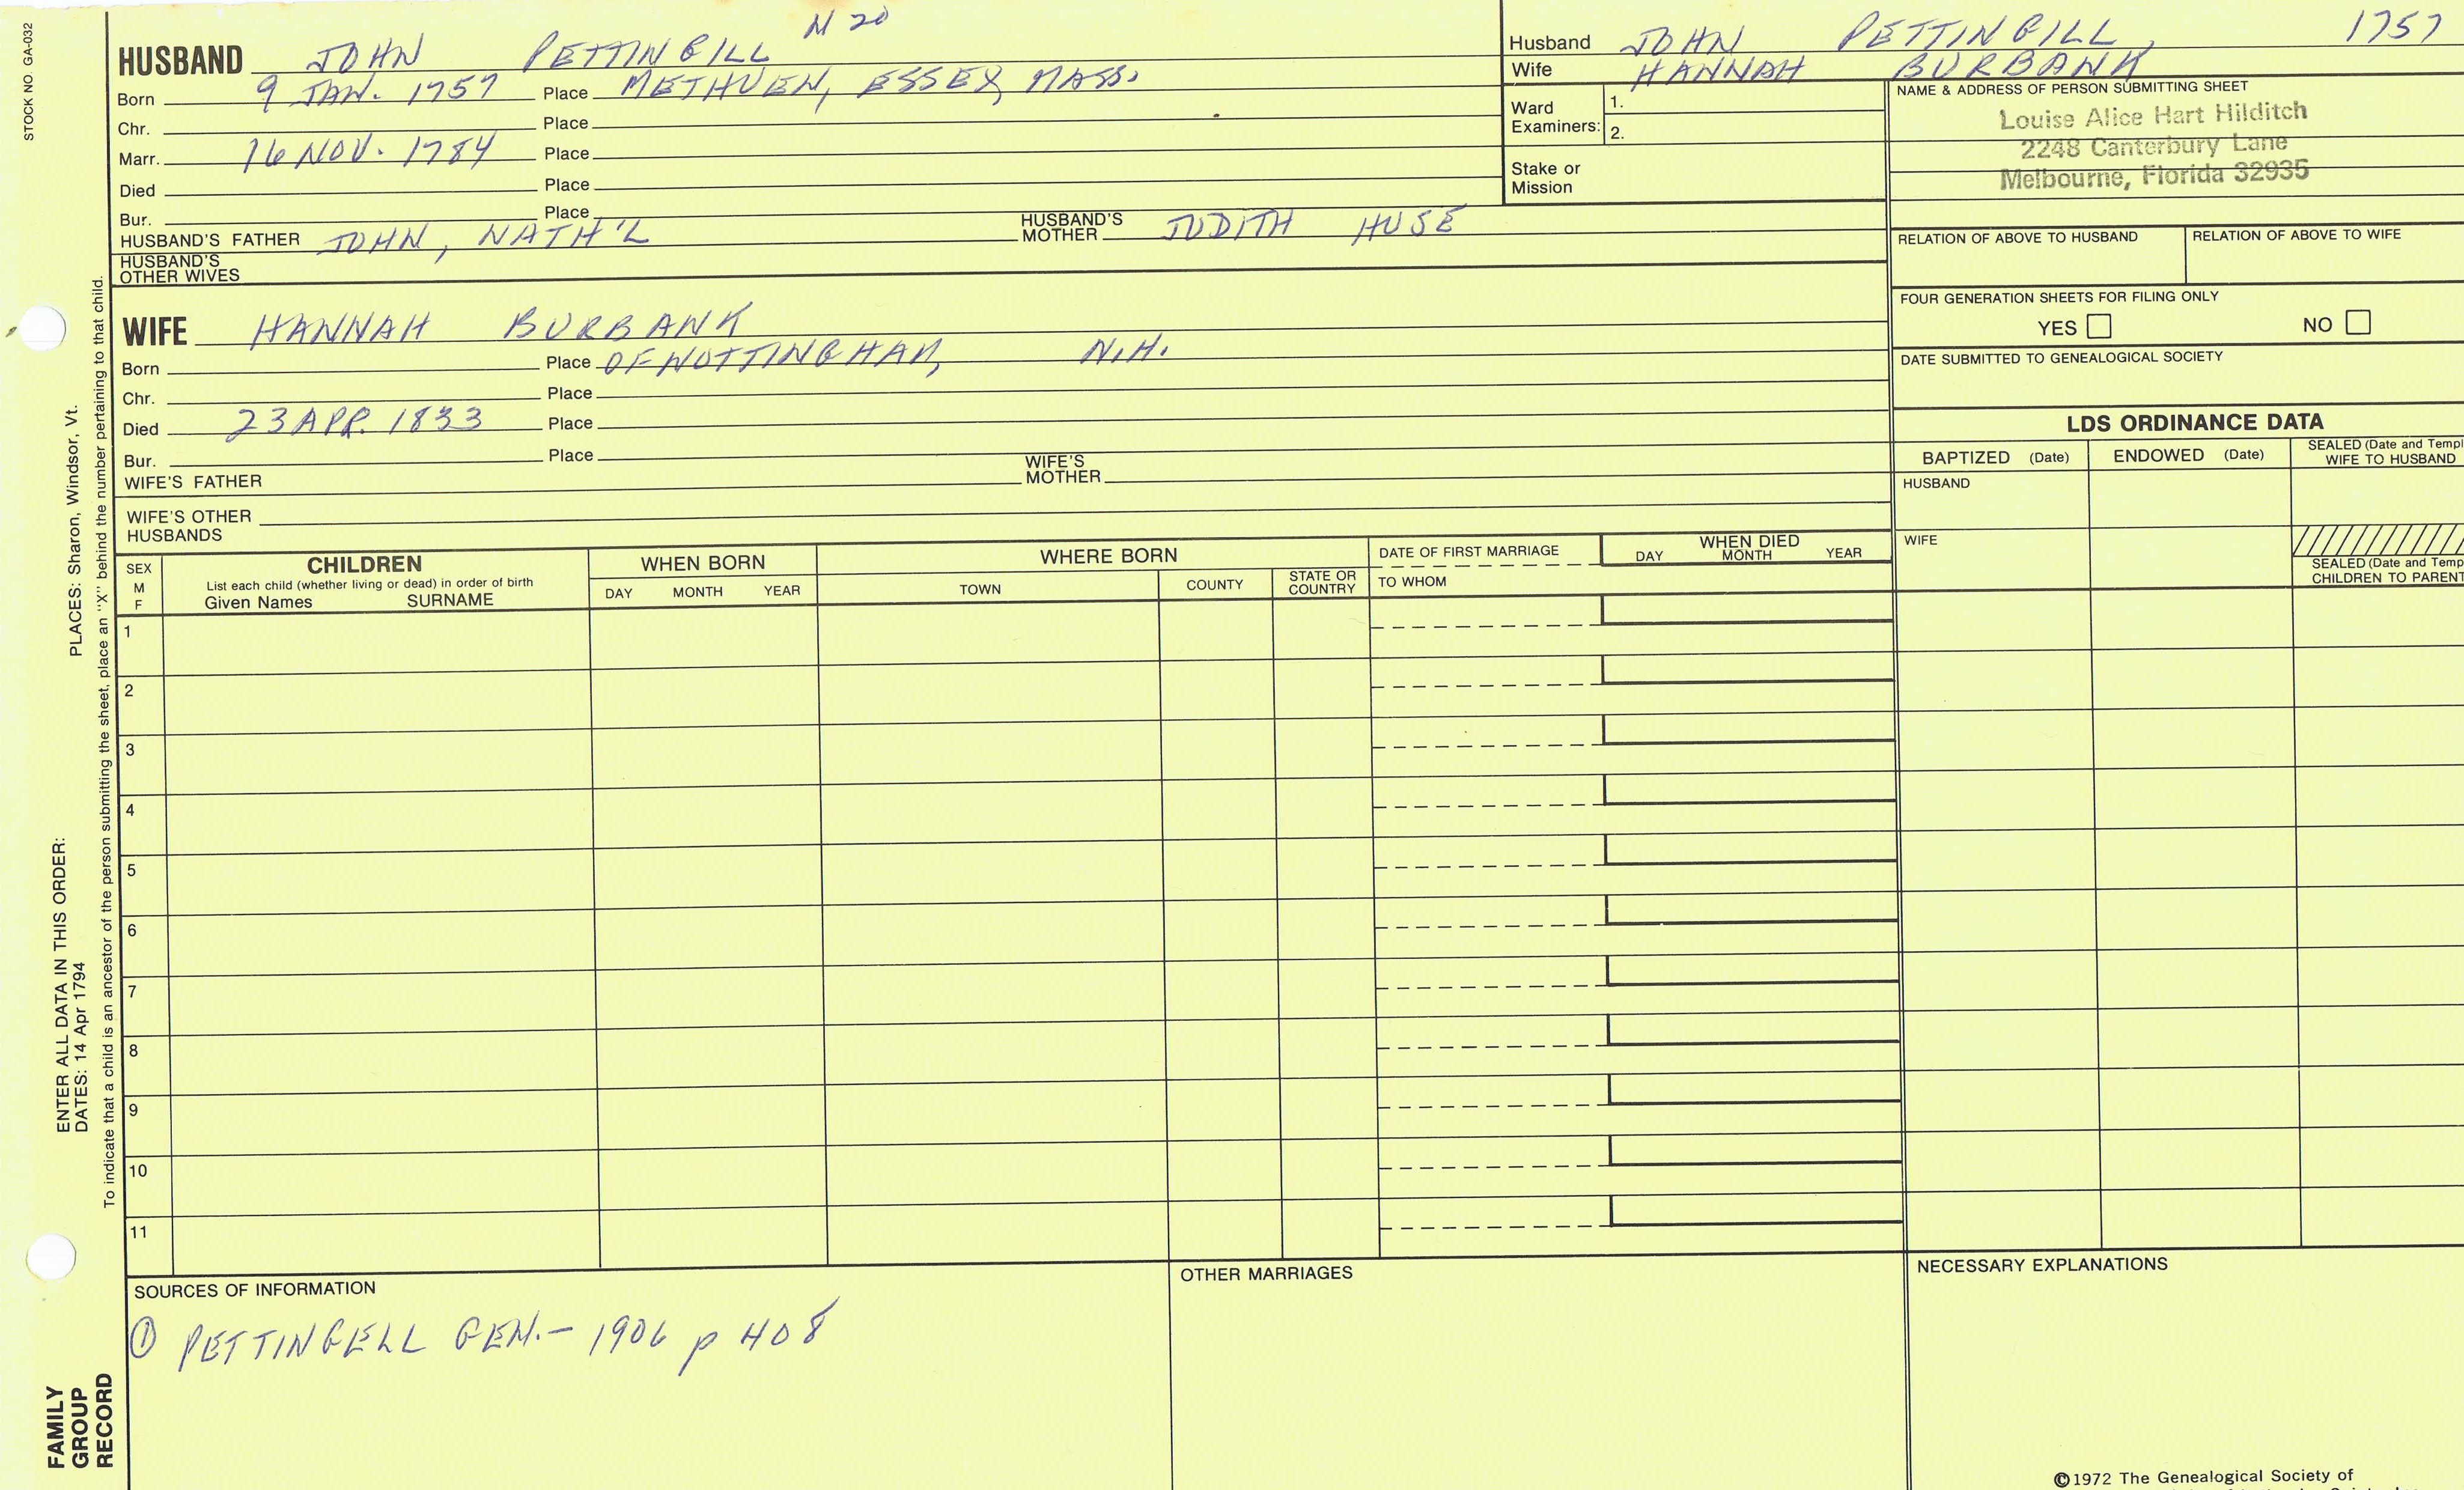 STOCK NO. GA-032
PLACES: Sharon, Windsor, Vt.
ENTER ALL DATA IN THIS ORDER:
DATES: 14 Apr 1794
To indicate that a child is an ancestor of the person submitting the sheet, place an "X" behind the number pertaining to that child.
FAMILY
GROUP
RECORD
N 20
HUSBAND JOHN PETTINGILL
Born 9 JAN. 1757 Place METHUEN, ESSEX, MASS.
Chr. Place
Marr. 16 NOV. 1784 Place
Died Place
Bur. Place
HUSBAND'S FATHER JOHN, NATH'L HUSBAND'S MOTHER JUDITH HUSE
HUSBAND'S
OTHER WIVES
WIFE HANNAH BURBANK
Born Place OF NOTTINGHAM, N.H.
Chr. Place
Died 23 APR. 1833 Place
Bur. Place
WIFE'S FATHER WIFE'S MOTHER
WIFE'S OTHER
HUSBANDS
Husband JOHN PETTINGILL, 1757
Wife HANNAH BURBANK
Ward
Examiners:
1.
2.
Stake or
Mission
NAME & ADDRESS OF PERSON SUBMITTING SHEET
Louise Alice Hart Hilditch
2248 Canterbury Lane
Melbourne, Florida 32935
RELATION OF ABOVE TO HUSBAND RELATION OF ABOVE TO WIFE
FOUR GENERATION SHEETS FOR FILING ONLY
YES NO
DATE SUBMITTED TO GENEALOGICAL SOCIETY
LDS ORDINANCE DATA
BAPTIZED (Date) ENDOWED (Date) SEALED (Date and Templ
WIFE TO HUSBAND
HUSBAND
WIFE
SEALED (Date and Temp
CHILDREN TO PARENT
SEX
M
F
CHILDREN
List each child (whether living or dead) in order of birth
Given Names SURNAME
WHEN BORN
DAY MONTH YEAR
WHERE BORN
TOWN COUNTY STATE OR COUNTRY
DATE OF FIRST MARRIAGE
TO WHOM
WHEN DIED
DAY MONTH YEAR
1
2
3
4
5
6
7
8
9
10
11
SOURCES OF INFORMATION
① PETTINGELL GEN. - 1906 p 408
OTHER MARRIAGES
NECESSARY EXPLANATIONS
©1972 The Genealogical Society of